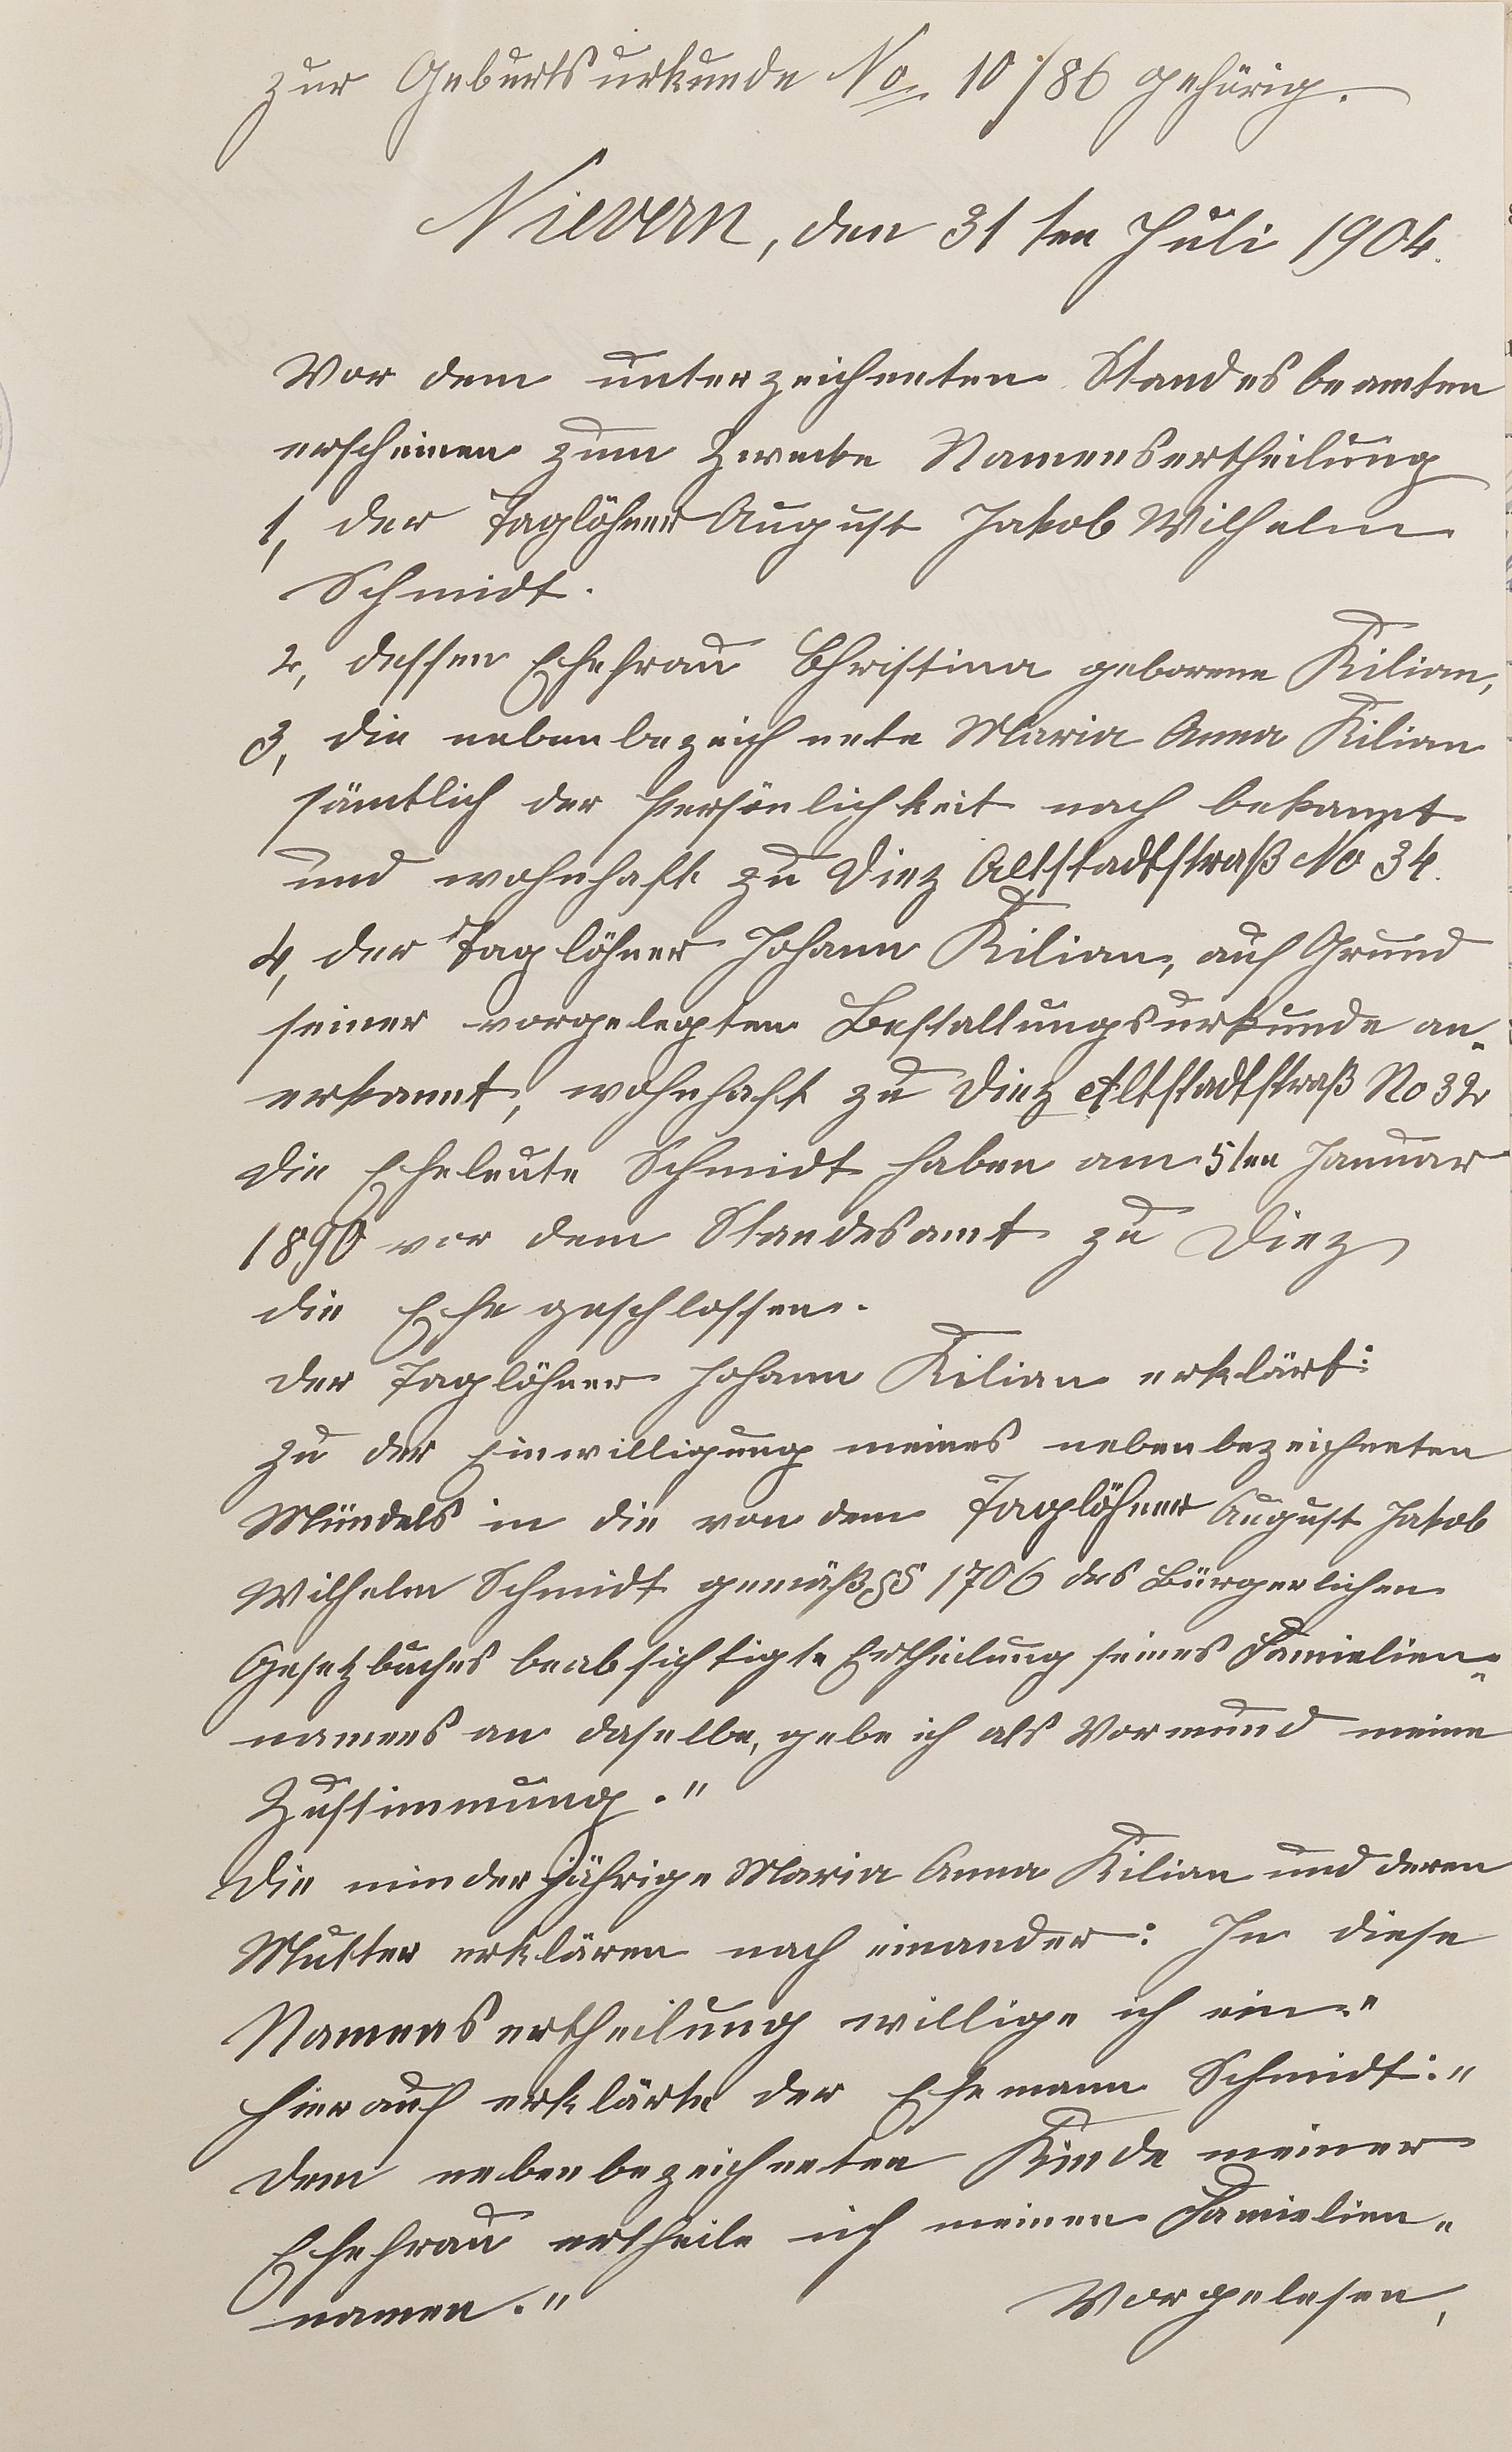 zur Geburtsurkunde No 10/86 gehörig.
Nievern, den 31ten Juli 1904.
Vor dem unterzeichneten Standesbeamten
erscheinen zum Zwecke Namensertheilung
1, der Taglöhner August Jakob Wilhelm
Schmidt.
2, dessen Ehefrau Christina geborene Kilian,
3, die nebenbezeichnete Maria Anna Kilian
sämtlich der Persönlichkeit nach bekannt
und wohnhaft zu Diez Altstadtstraß No 34.
4, der Taglöhner Johann Kilian, auf Grund
seiner vorgelegten Bestallungsurkunde an-
erkannt, wohnhaft zu Diez Altstadtstraß No 32
die Eheleute Schmidt haben am 5ten Januar
1890 vor dem Standesamt zu Diez
die Ehe geschlossen.
der Taglöhner Johann Kilian erklärt:
zu der Einwilligung meines nebenbezeichneten
Mündels in die von dem Taglöhner August Jakob
Wilhelm Schmidt gemäß §§ 1706 des Bürgerlichen
Gesetzbuches beabsichtigte Ertheilung seines Famielien-
namens an daselbe, gebe ich als Vormund meine
Zustimmung."
die minderjährige Maria Anna Kilian und deren
Mutter erklären nach einander: In diese
Namensertheilung willige ich ein."
hierauf erklärte der Ehemann Schmidt:"
dem nebenbezeichneten Kinde meiner
Ehefrau ertheile ich meinen Famielien-
namen." Vorgelesen,